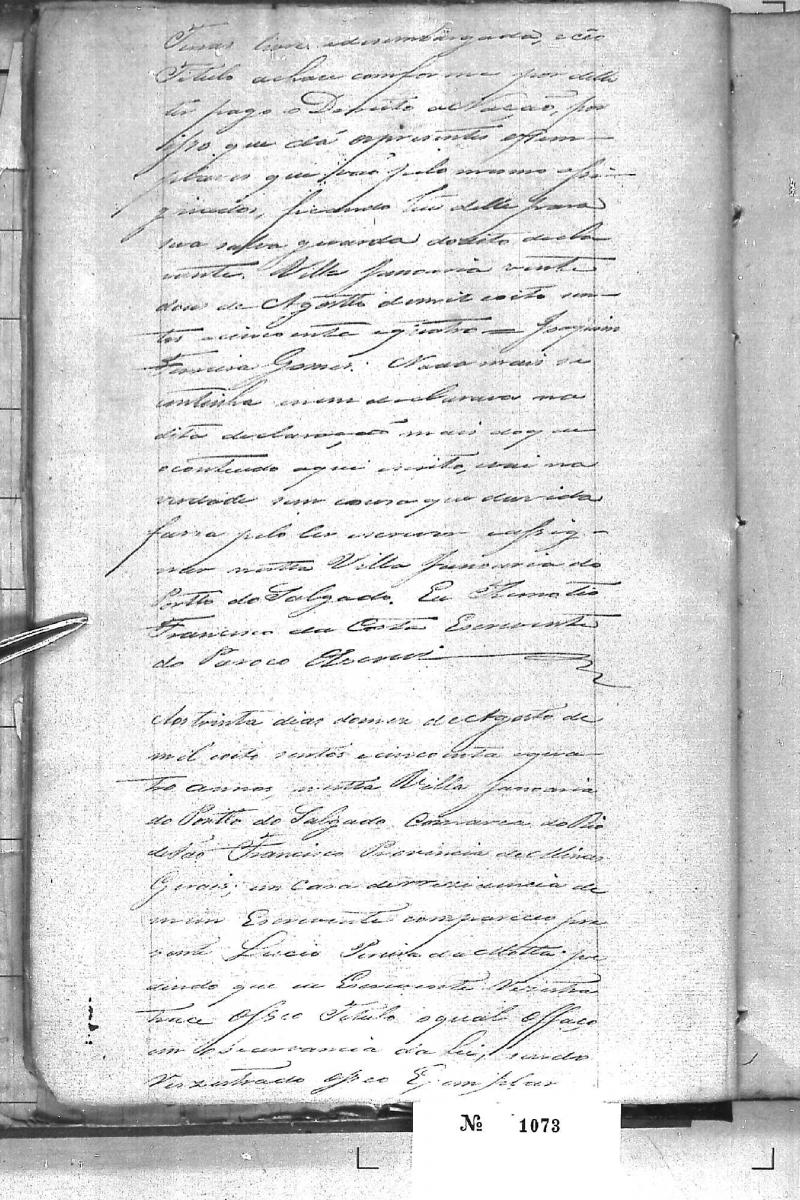 Terras livre edesembargada, e céo
Titulo achace comforme por delle
ter pago o Dereito a Nação, por
isso que dá os prezentes Exem-
plares que vão pelo mesmo assi-
gnados, ficando hũ delle para
sua salva guarda do dito decla
rante. Villa Januaria vinte
dous de Agosto de mil e oito sen-
tos e cincoenta e quatro = Joaquim
Ferreira Gomes. Nada mais se
continha enem declarava na
dita declaração mais doque
ocontiudo aqui escrito, vai na
verdade sem cousa que duvida
fassa pelo ler escrever eassig-
nar nesta Villa Januaria do
Portto do Salgado. Eu
Francisco da Costa Escrevente
do Paroco Escrevi
Aos trinta dias domez de Agosto de
mil e oito sentos e cincoenta e qua-
tro annos, nesta Villa Januaria
do Portto do Salgado Comarca do Rio
de São Francisco Provincia de Minas
Gerais, em Casa de rrezidencia de
mim Escrevente compareceo pre
zente Lucio Pereira da Motta pe
dindo que eu Escrevente rezistra
trace o seo Titulo o qual o faço,
em observancia da Lei, sendo
rezistrado o seo Ezemplar
Nº 1073